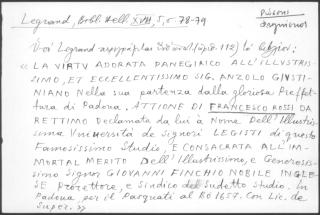 Legrand, Bibl. Hell. XVII, 5, σ. 78-79
LA VIRTV ADORATA PANEGIRICO ALL'ILLVSTRIS-
SIMO, ET ECCELLENTISSIMO SIG. ANZOLO GIVSTI-
NIANO Nella sua partenza dalla gloriosa Preffet-
tura di Padova, ATTIONE DI FRANCESCO ROSSI DA
RETTIMO Declamata da lui à Nome Dell'Illustris-
sima Vniuersità de Signori LEGISTI di questo
Famosissimo Studio, E CONSACRATA ALL'IM-
MORTAL MERITO Dell'Illustrissimo, e Generosis-
simo Signor GIOVANNI FINCHIO NOBILE INGLE-
SE Protettore, e Sindico del Sudetto Studio. In
Padova per il Pasquati al Bo 1657. Con Lic. de
Super. »